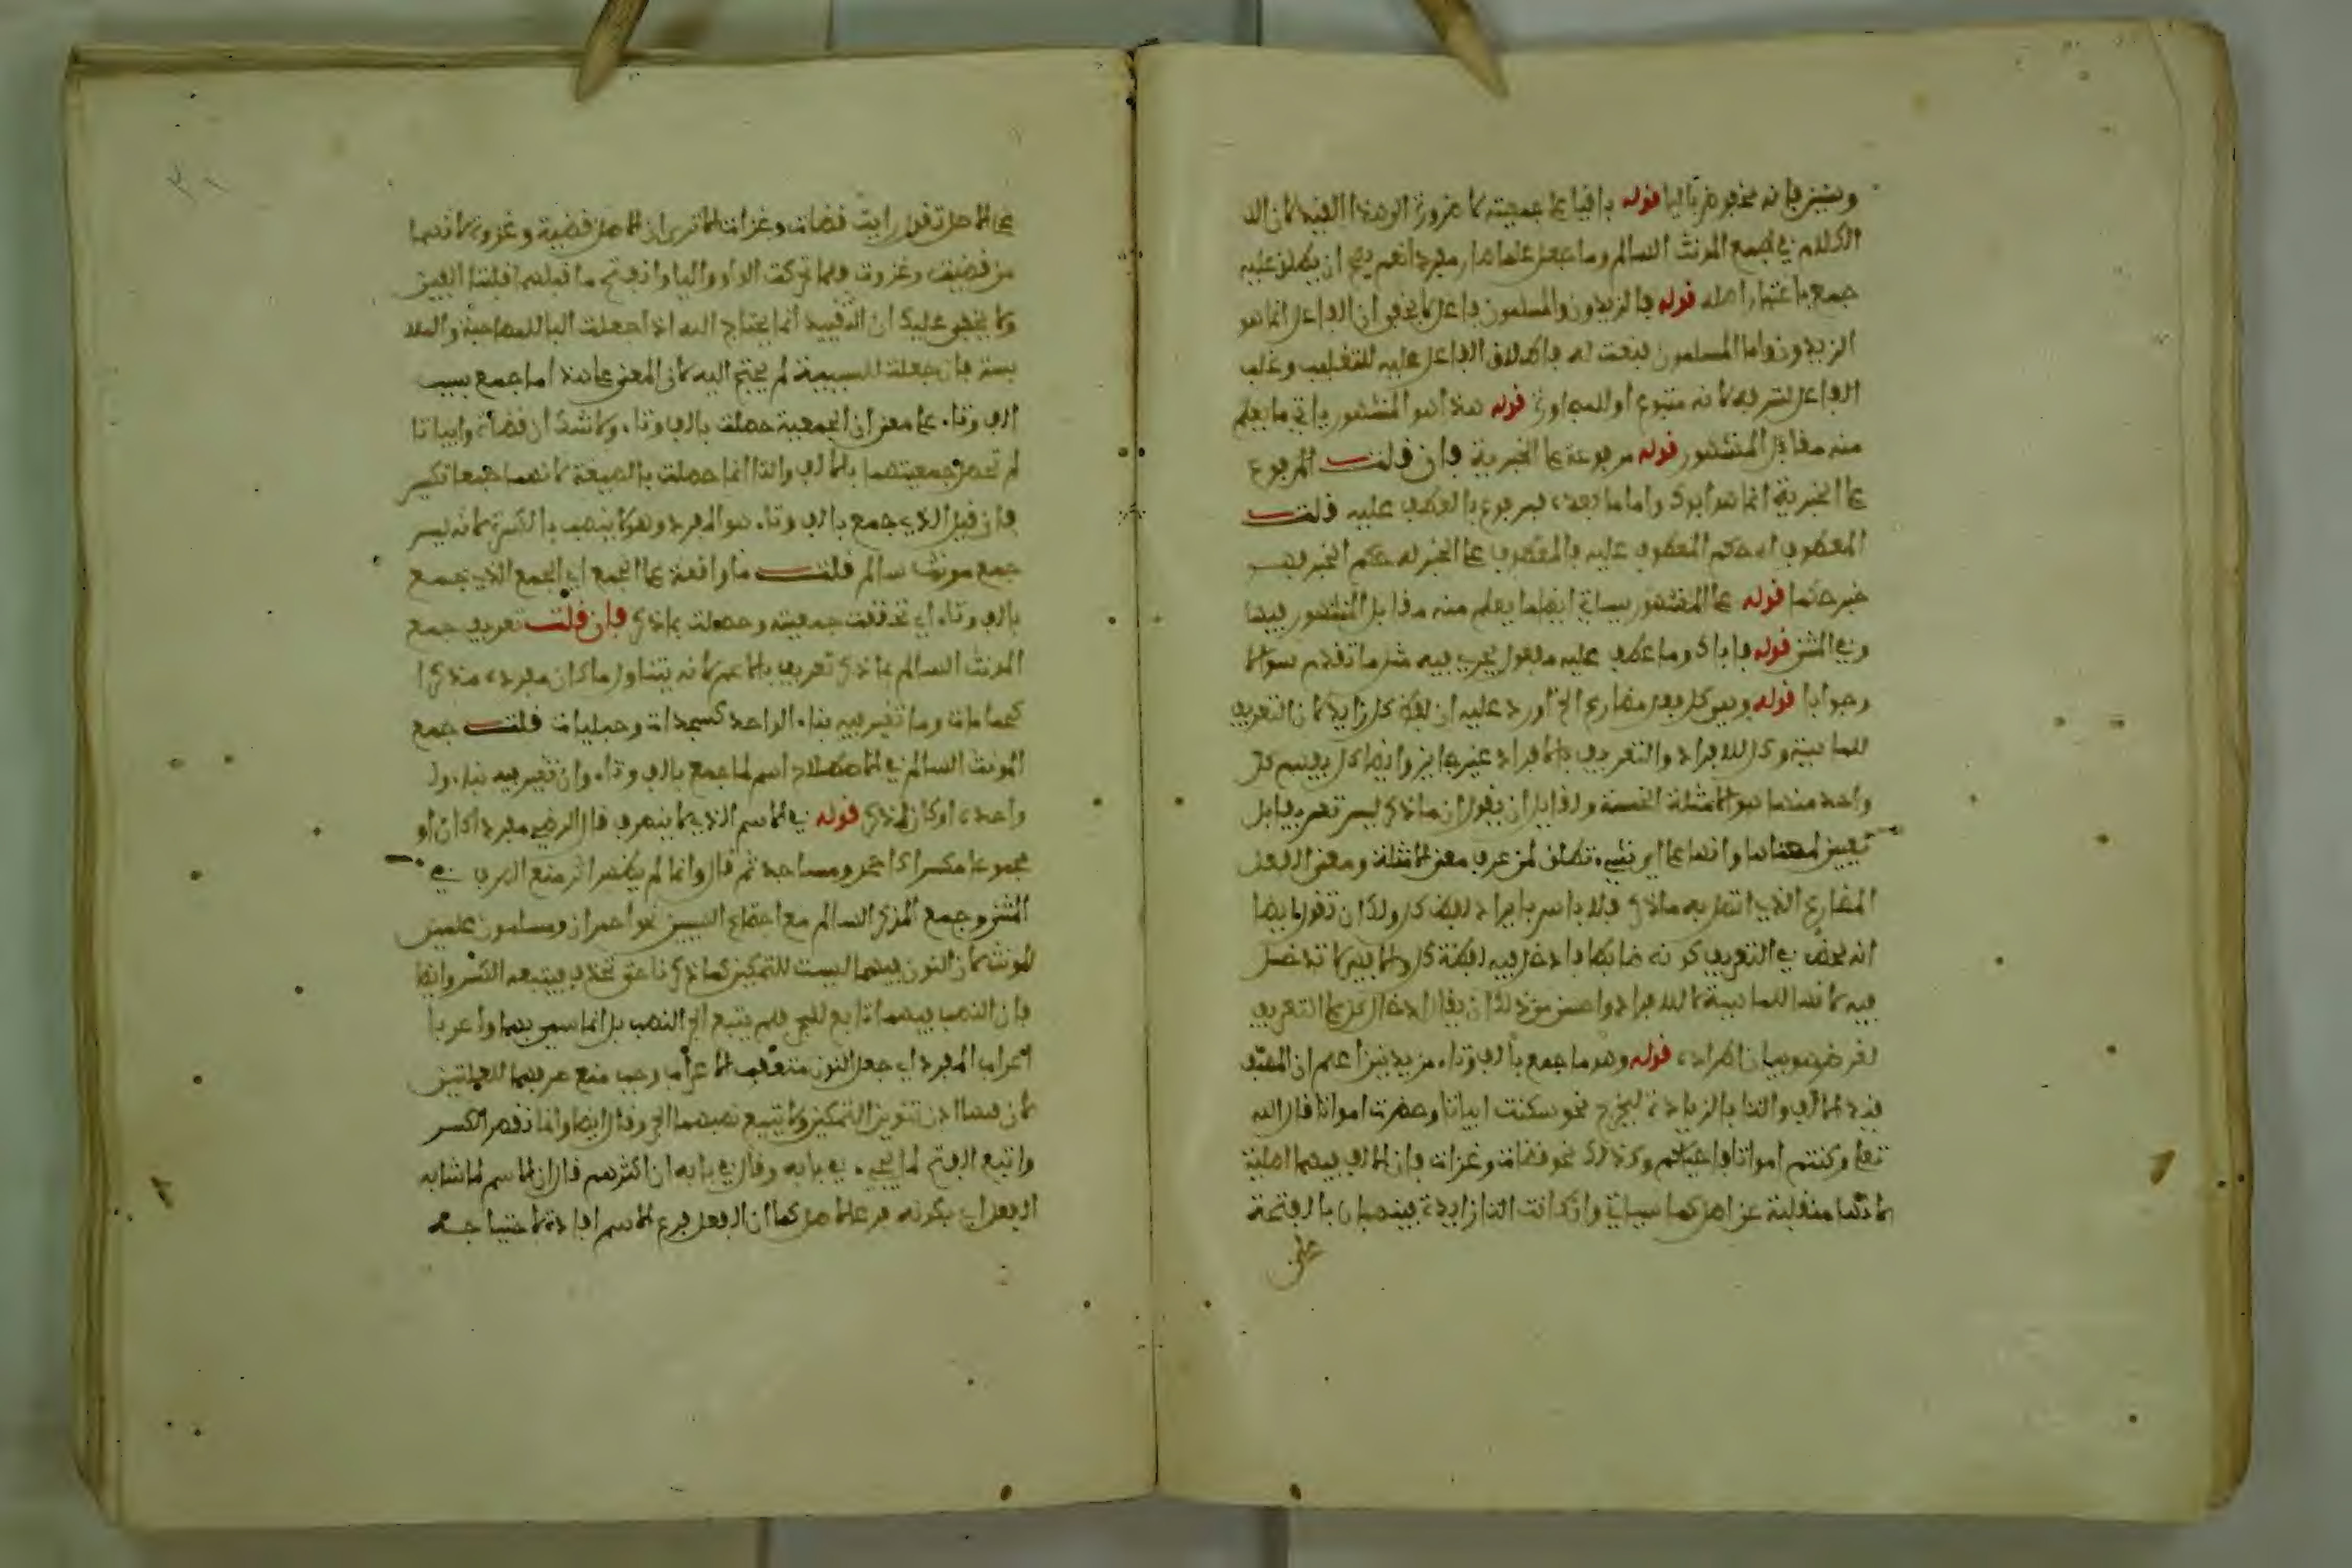 قوله باقيا على جمعيته لا ضرورة
الكلام في الجمع المونث السالم وما جعل علما صار مفردا نعم يصح ان يطلق عليه
جمع باعتبار اصله قوله فالزيدون والمسلمون فاعل لا يخفى ان الفاعل انما هو
الزيدون واما المسلمون فنعت له فاطلاق الفاعل عليه للتغليب وغلب
الفاعل لشرفه لانه متبوع او للمجاورة قوله هذا هو المشهور ياتي ما يعلم
منه مقابل المشهور قوله مرفوعة على الخبرية فان قلت المرفوع
على الخبرية انما هو ابوك واما ما بعده فمرفوع بالعطف عليه قلت
المعطوف له حكم المعطوف عليه فالمعطوف على الخبر له حكم الخبر فهو
خبر حكما قوله على المشهور سياتي ايضا ما يعلم منه مقابل المشهور فيها
وفي المثنى قوله فاباك وما عطف عليه مفعول يجري فيه مثل ما تقدم سؤالا
وجوابا قوله وهو كل فعل مضارع الخ اورد عليه ان لفظ كل زايد لان التعريف
للماهية وكل للافراد والتعريف بالافراد غير جايز وايضا كل
واحد منها هو الامثلة الخمسة ولقايل ان يقول ان ما ذكر ليس تعريفا بل
تعيين لمعناها وانها على اي شيء تطلق لمن عرف معنى الامثلة ومعنى الفعل
المضارع الذي اتصل به ما ذكر فلا باس بايراد لفظ كل ولك ان تقول ايضا
انه يحض في التعريف كونه ضابطا فادخل فيه لفظة كل والا فهي لا تدخل
فيه لانها للماهية لا للافراد واحسن من ذلك ان يقال ادخال كل على التعريف
لغرض هو بيان اطراده قوله وهو ما جمع بالف وتاء مزيدتين اعلم ان المصنف
قيد الالف والتا بالزيادة ليخرج نحو سكنت ابياتا وحضرت امواتا قال الله
تعلى وكنتم امواتا فاحياكم وكذلك نحو قضات وغزات فان الالف فيهما اصلية
لانها منقلبة عن اصل كما سياتي وان كانت التا زايدة فينصبان بالفتحة
على
على الاصل تقول رايت قضات وغزات الا ترى ان الاصل قضية وغزوة لانهما
من قضيت وغزوت فلما تحركت الواو واليا وانفتح ما قبلهما قلبتا الفين
ولا يخفى عليك ان التقييد انما يحتاج اليه اذا جعلت البا للمصاحبة والملا
بسة فان جعلت للسببية لم يحتج اليه لان المعنى على هذا اما جمع بسبب
الف وتاء على معنى ان الجمعية حصلت بالف وتاء ولا شك ان قضاة وابياتا
لم تحصل جمعيتهما بالالف والتا انما حصلت بالصيغة لانهما جمعا تكسير
فان قيل الذي جمع بالف وتاء هو المفرد وهو لا ينصب بالكسرة لانه ليس
جمع مونث سالم قلت ما واقعة على الجمع اي الجمع الذي جمع
بالف وتاء اي تحققت جمعيته وحصلت بما ذكر فان قلت تعريف جمع
المونث السالم بما ذكر تعريف بالاعم لانه يتناول ما كان مفرده مذكرا
كحمامات وما تغير فيه بناء الواحد كسجدات وحبليات قلت جمع
المونث السالم في الاصطلاح اسم لما جمع بالف وتاء وان تغير فيه بناء
واحده او كان لمذكر قوله في الاسم الذي لا ينصرف قال الرضي مفردا كان او
مجموعا مكسرا كاحمر ومساجد ثم قال وانما لم يظهر اثر منع الصرف في
المثنى وجمع المذكر السالم مع اجتماع السببين نحو احمران ومسلمون علمين
لمونث لان النون فيهما ليست للتمكين كما ذكرنا حتى تحذف فيتبعه الكسر وايضا
فان النصب فيهما تابع للجر فلم يتبع الجر النصب بل انما سمي بهما واعربا
اعراب المفرد اي جعل النون معتقب الاعراب وجب منع صرفهما للعلمتين
لان فيهما اذن تنوين التمكين ولا يتبع نصبهما الجر وقال ايضا وانما نقصر الكسر
واتبع الفتح لما يجيء في بابه وقال في بابه ان اكثرهم قال ان الاسم لما شابه
الفعل اي بكونه فرعا لاصل كما ان الفعل فرع الاسم افادة لاحتياجه